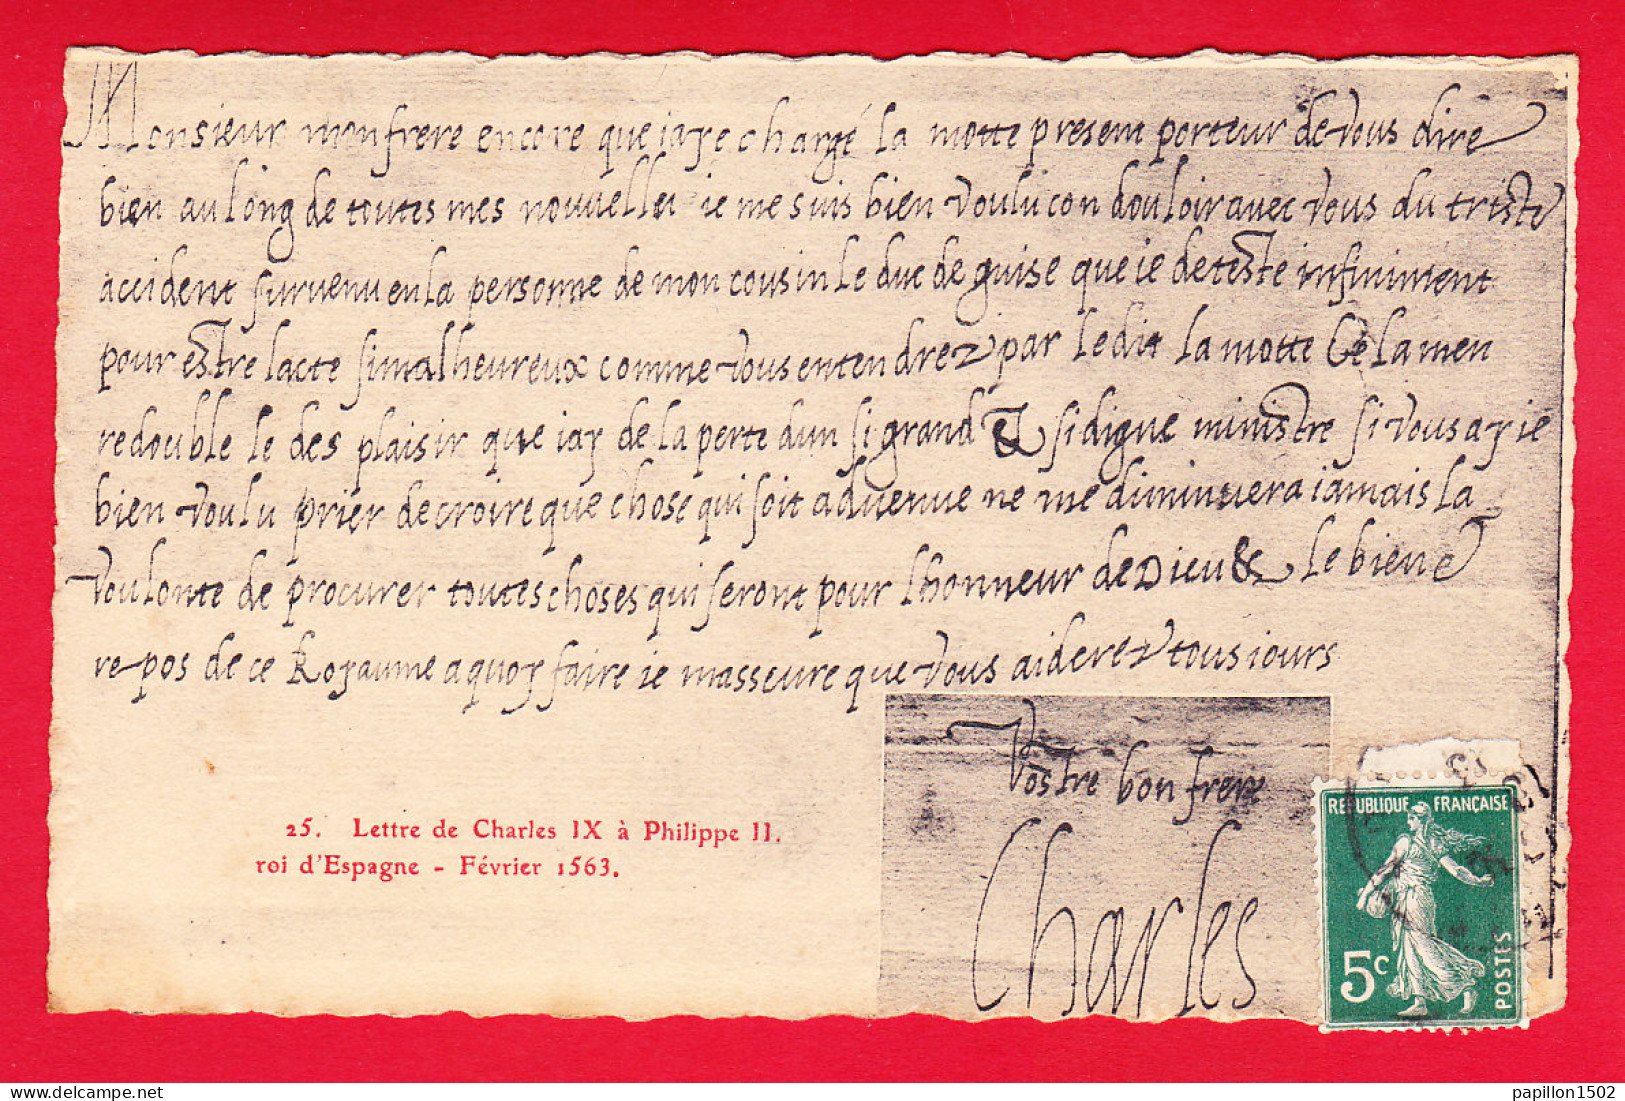 Monsieur mon frere encore que iaye chargé la motte present porteur de vous dire
bien au long de toutes mes nouvelles ie me suis bien voulu condouloir avec vous du triste
accident survenu en la personne de mon cousin le duc de guise que ie deteste infiniment
pour estre lacte si malheureux comme vous entendrez par ledit la motte Cela men
redouble le desplaisir que iay de la perte dun si grand & si digne ministre si vous ay ie
bien voulu prier de croire que chose qui soit advenue ne me diminuera iamais la
voulonte de procurer toutes choses qui seront pour lhonneur de Dieu & le bien e
repos de ce Royaume a quoy faire ie masseure que vous aiderez tousiours
Vostre bon frere
Charles
25. Lettre de Charles IX à Philippe II.
roi d'Espagne - Février 1563.
REPUBLIQUE FRANÇAISE
5c
POSTES
papillon1502